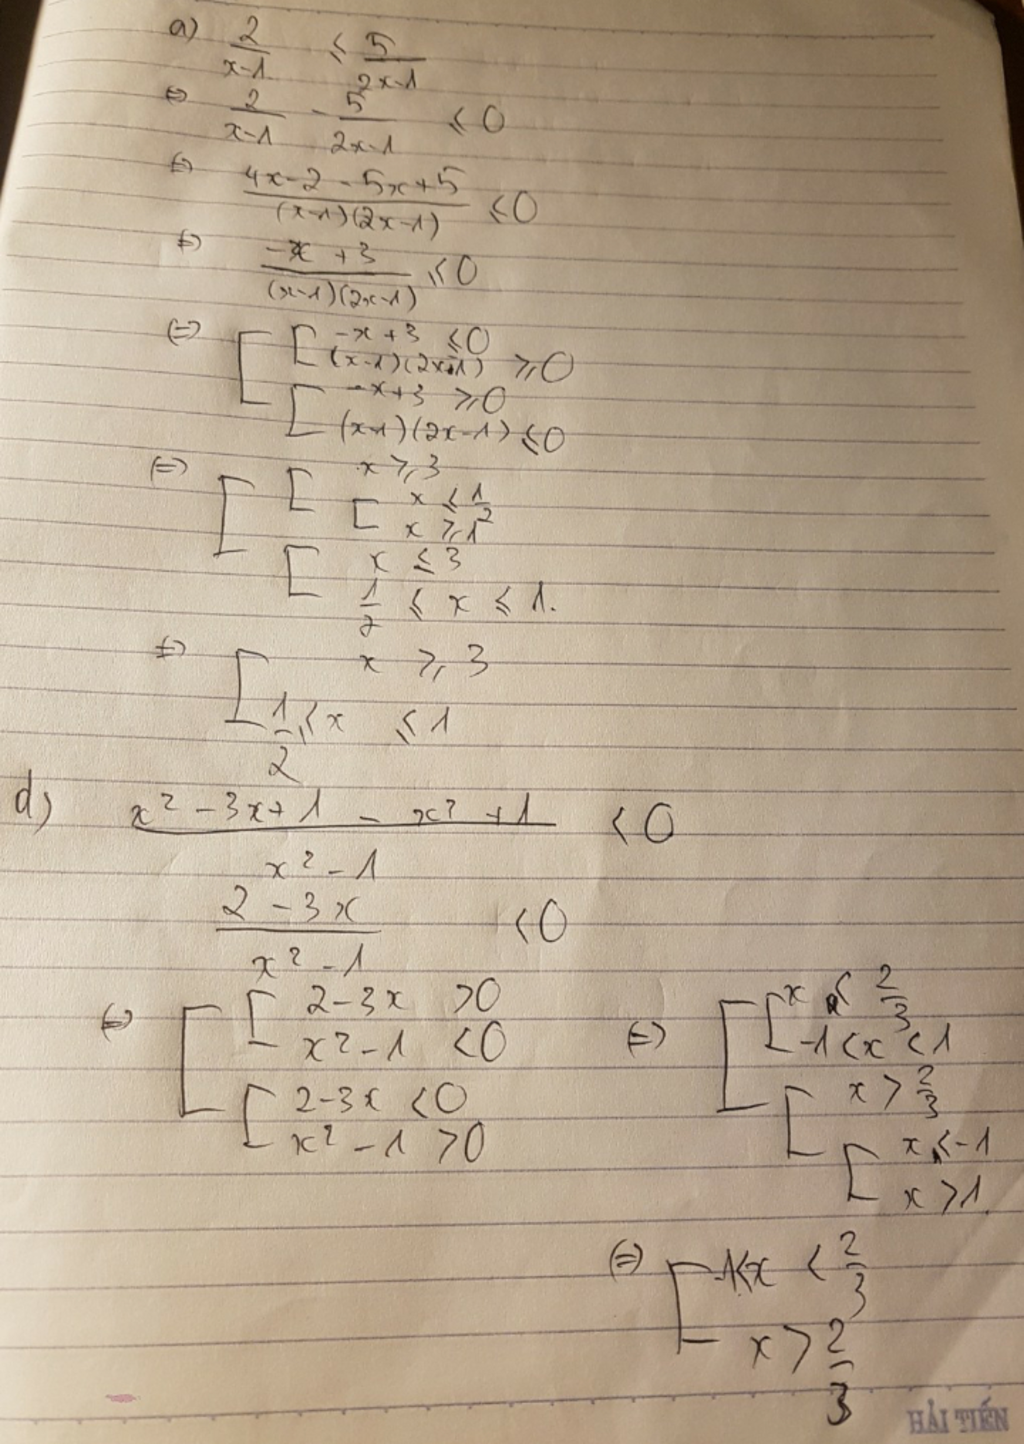 a) 2/(x-1) ≤ 5/(2x-1)
⇔ 2/(x-1) - 5/(2x-1) ≤ 0
⇔ (4x-2-5x+5)/((x-1)(2x-1)) ≤ 0
⇔ (-x+3)/((x-1)(2x-1)) ≤ 0
⇔ [ [ -x+3 ≤ 0
(x-1)(2x-1) ≥ 0
[ -x+3 ≥ 0
(x-1)(2x-1) ≤ 0
⇔ [ [ x ≥ 3
[ x ≤ 1/2
x ≥ 1
[ x ≤ 3
1/2 ≤ x ≤ 1.
⇔ [ x ≥ 3
1/2 ≤ x ≤ 1
d) (x² - 3x + 1 - x² + 1)/(x² - 1) < 0
(2 - 3x)/(x² - 1) < 0
⇔ [ [ 2-3x > 0
x² - 1 < 0
[ 2-3x < 0
x² - 1 > 0
⇔ [ [ x < 2/3
-1 < x < 1
[ x > 2/3
[ x < -1
x > 1.
⇔ [ -1 < x < 2/3
x > 2/3
HẢI TIẾN